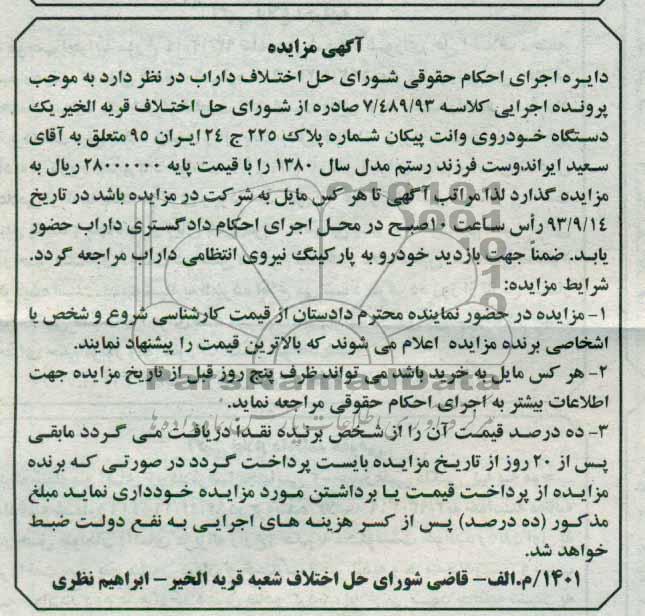 آگهی مزایده
دایره اجرای احکام حقوقی شورای حل اختلاف داراب در نظر دارد به موجب
پرونده اجرایی کلاسه ۷/۴۸۹/۹۳ صادره از شورای حل اختلاف قریه الخیر یک
دستگاه خودروی وانت پیکان شماره پلاک ۲۲۵ ج ۲۴ ایران ۹۵ متعلق به آقای
سعید ایراندوست فرزند رستم مدل سال ۱۳۸۰ را با قیمت پایه ۲۸۰۰۰۰۰۰ ریال به
مزایده گذارد لذا مراتب آگهی تا هر کس مایل به شرکت در مزایده باشد در تاریخ
۹۳/۹/۱۴ رأس ساعت ۱۰صبح در محل اجرای احکام دادگستری داراب حضور
یابد. ضمناً جهت بازدید خودرو به پارکینگ نیروی انتظامی داراب مراجعه گردد.
شرایط مزایده:
۱- مزایده در حضور نماینده محترم دادستان از قیمت کارشناسی شروع و شخص یا
اشخاصی برنده مزایده اعلام می شوند که بالاترین قیمت را پیشنهاد نمایند.
۲- هر کس مایل به خرید باشد می تواند ظرف پنج روز قبل از تاریخ مزایده جهت
ParsNamadData
اطلاعات بیشتر به اجرای احکام حقوقی مراجعه نماید.
۳- ده درصد قیمت آن را از شخص برنده نقداً دریافت می گردد مابقی
پس از ۲۰ روز از تاریخ مزایده بایست پرداخت گردد در صورتی که برنده
مزایده از پرداخت قیمت یا برداشتن مورد مزایده خودداری نماید مبلغ
مذکور (ده درصد) پس از کسر هزینه های اجرایی به نفع دولت ضبط
خواهد شد.
۱۴۰۱/م.الف- قاضی شورای حل اختلاف شعبه قریه الخیر- ابراهیم نظری